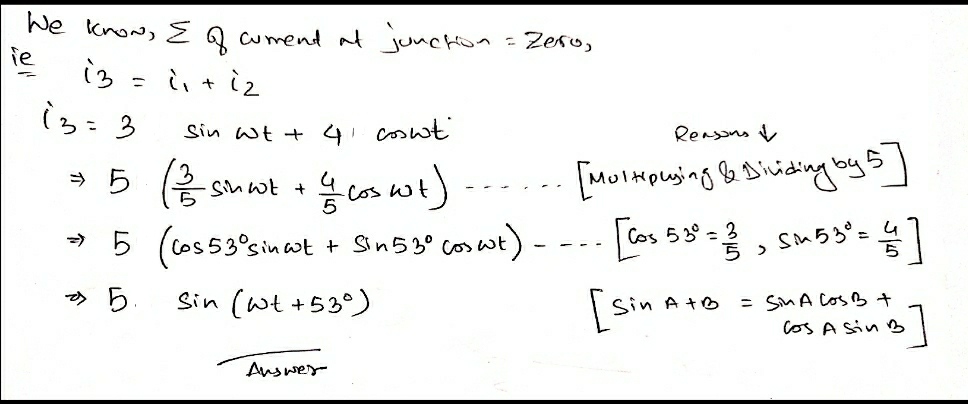 We know, Σ of current at junction = Zero,
ie
i3 = i1 + i2
i3 = 3 sin wt + 4 coswt
Reasons ↓
⇒ 5 (3/5 sinwt + 4/5 cos wt) ------- [Multiplying & Dividing by 5]
⇒ 5 (cos53° sinwt + Sin53° coswt) ---- [Cos 53° = 3/5, sin53° = 4/5]
⇒ 5. sin (wt + 53°) [Sin A+B = SinA CosB +
Cos A Sin B]
Answer